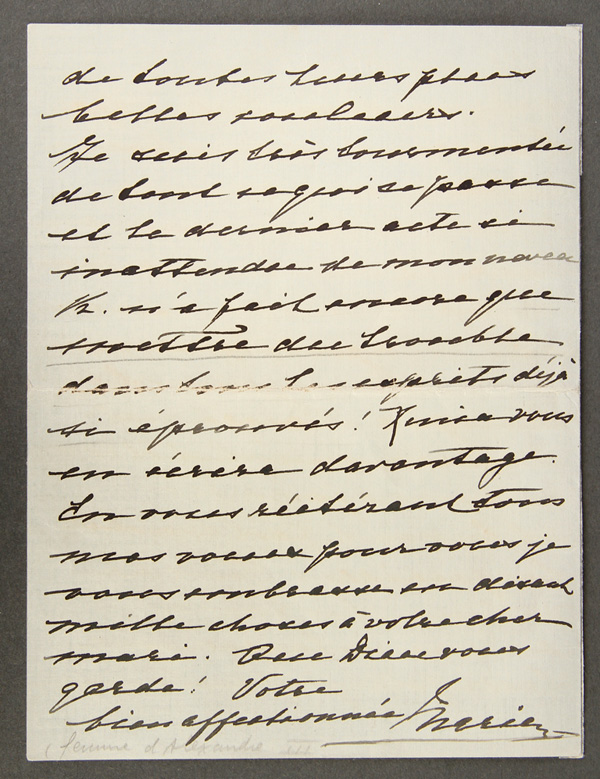 de toutes leurs plus
belles couleurs.
Je suis très tourmentée
de tout ce qui se passe
et le dernier acte si
inattendu de mon neveu
K. n'a fait encore que
mettre du trouble
dans tous les esprits déjà
si éprouvés! vous
en écrire davantage.
En vous réitérant tous
mes voeux pour vous je
vous embrasse en disant
mille choses à votre cher
mari. Que Dieu vous
garde! Votre
bien affectionnée Marie
(femme d'Alexandre III